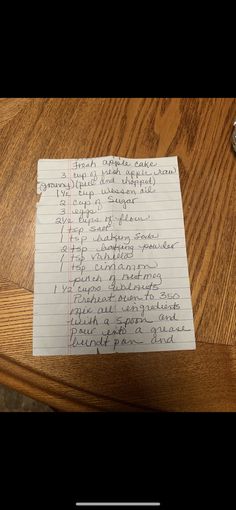 Fresh apple cake
3 cup of fresh apple raw
(granny) (peel and chopped)
1 1/2 cup Wesson oil
2 cup of Sugar
3 eggs
2 1/2 cups of flour
1 tsp Salt
1 tsp baking Soda
2 tsp baking powder
1 tsp Vanilla
1 tsp cinnamon
pinch of nutmeg
1 1/2 cups walnuts
Preheat oven to 350
mix all ingredients
with a spoon and
pour into a grease
bundt pan and